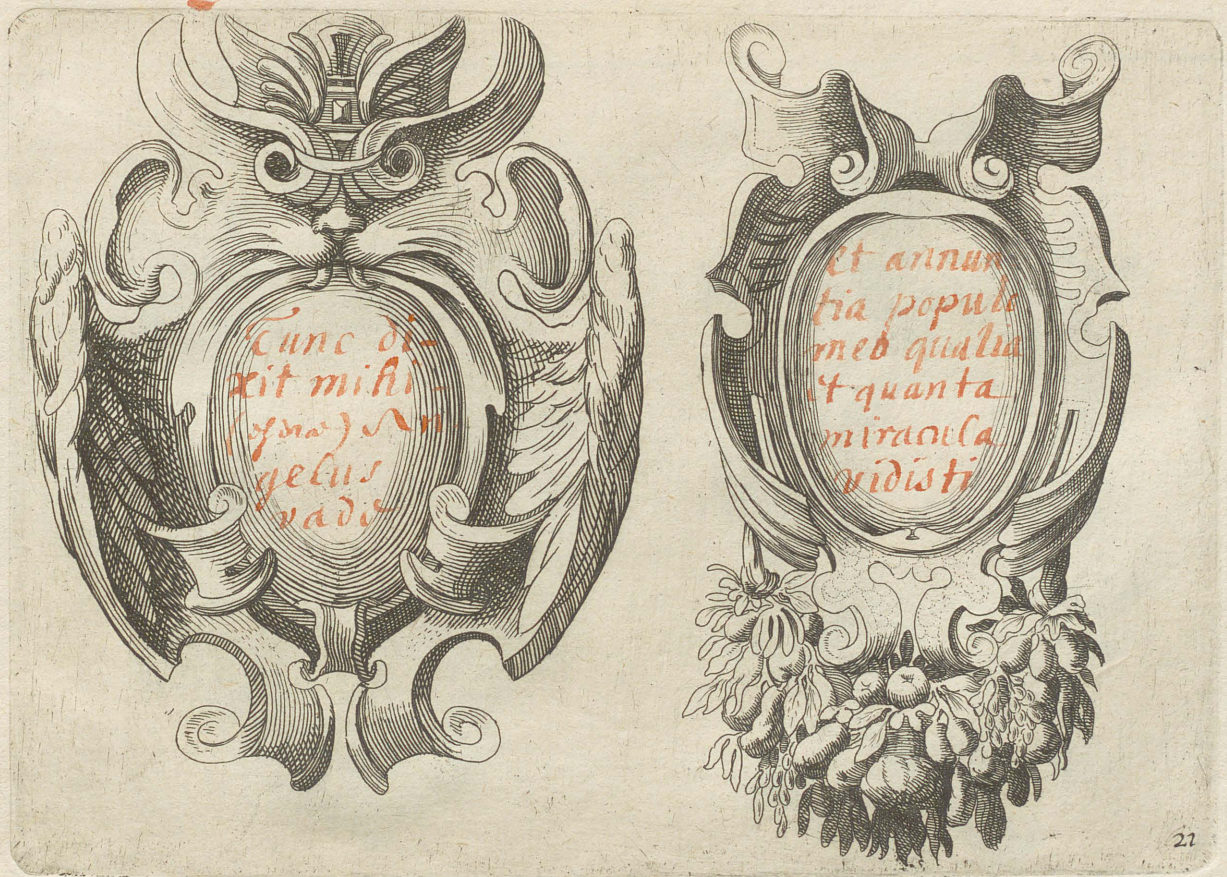 Tunc di-
xit mihi
An
gelus
vade
et annun
tia populo
meo qualia
et quanta
miracula
vidisti
21